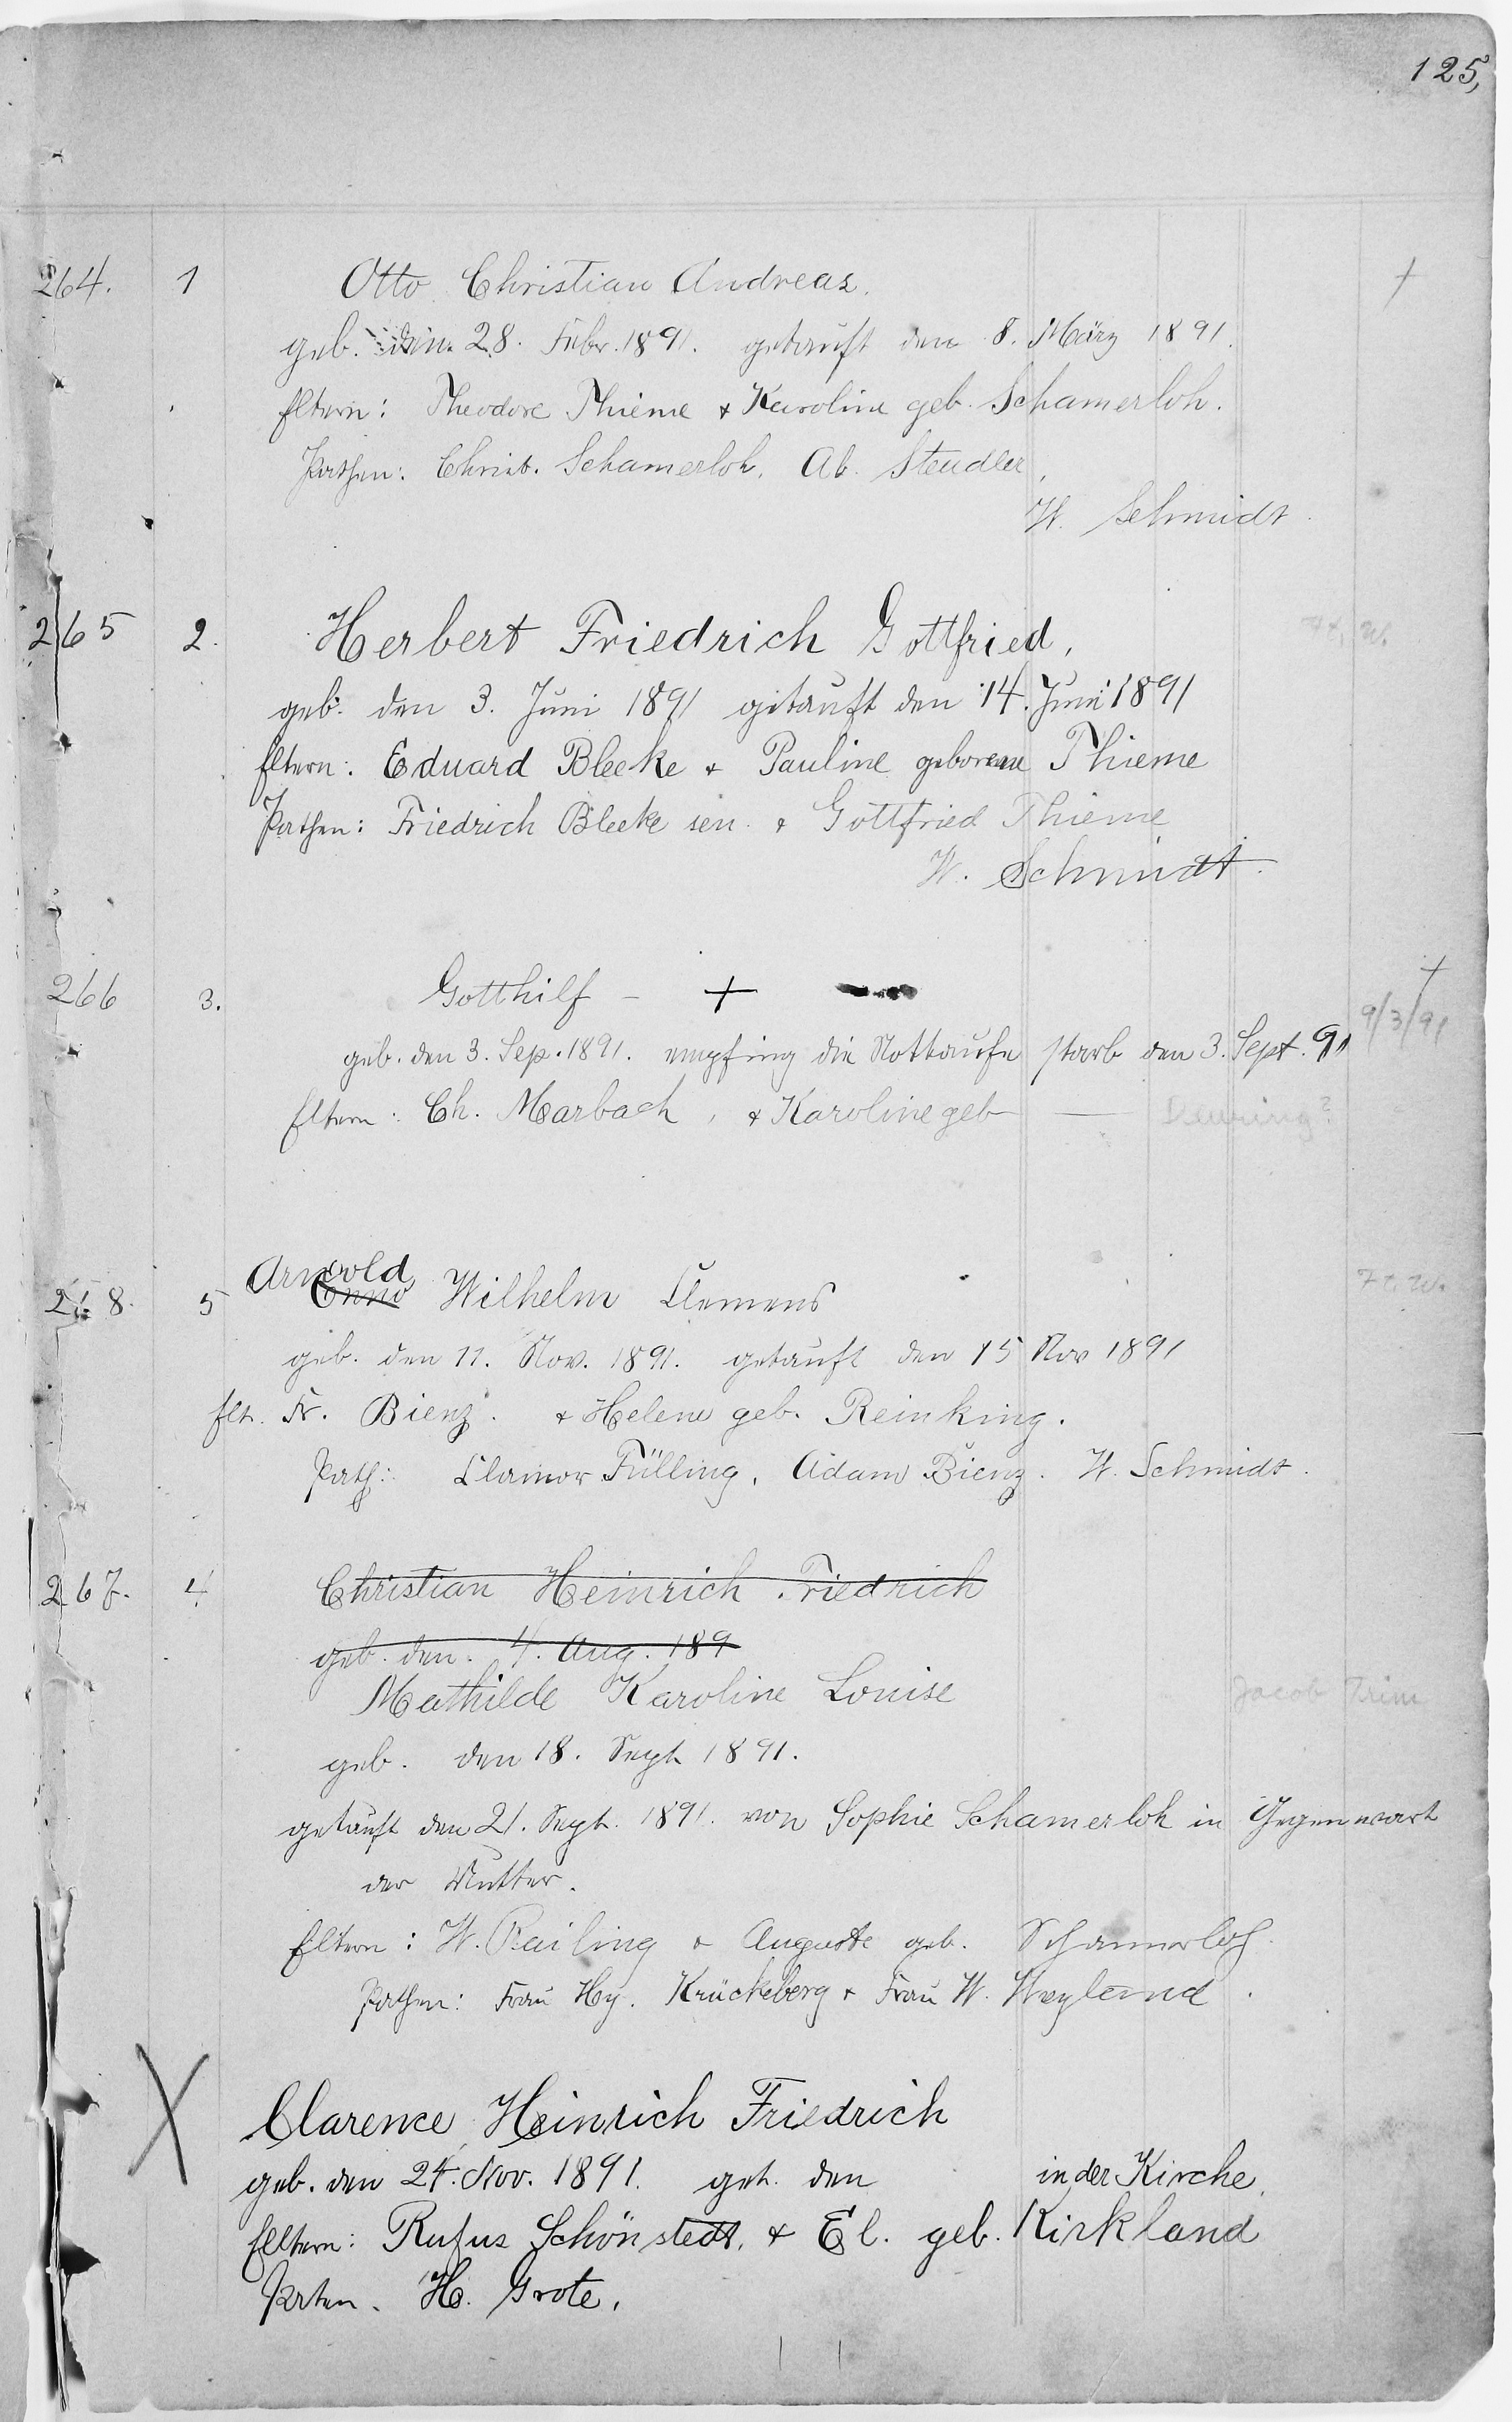 125,
264. 1 Otto Christian Andreas. †
geb. den 28. Febr. 1891. getauft den 8. März 1891.
Eltern: Theodore Thieme & Karoline geb. Schamerloh.
Pathen: Christ. Schamerloh, Ab. Steudler,
W. Schmidt.
265 2. Herbert Friedrich Gottfried, Ft. W.
geb. den 3. Juni 1891 getauft den 14. Juni 1891
Eltern: Eduard Bleeke & Pauline geborene Thieme
Pathen: Friedrich Bleeke sen. & Gottfried Thieme
W. Schmidt.
266 3. Gotthilf - † †
geb. den 3. Sep. 1891. empfing die Nottaufe starb den 3. Sept. 91 9/3/91
Eltern: Ch. Marbach, & Karoline geb — Deuring?
Arnold
268. 5 Enno Wilhelm Clemens Ft. W.
geb. den 11. Nov. 1891. getauft den 15 Nov 1891
Elt. Fr. Bienz. & Helene geb. Reinking.
Path: Clamor Fülling, Adam Bienz. W. Schmidt.
267. 4 Christian Heinrich Friedrich
geb. den. 4. Aug. 189
Mathilde Karoline Louise Jacob Trim
geb. den 18. Sept 1891.
getauft den 21. Sept. 1891. von Sophie Schamerloh in Gegenwart
der Mutter.
Eltern: W. Railing & Auguste geb. Schamerloh.
Pathen: Frau Hy. Krückeberg & Frau W. Weyland.
X Clarence Heinrich Friedrich
geb. den 24. Nov. 1891. get. den in der Kirche.
Eltern: Rufus Schönstedt, & El. geb. Kirkland
Paten. H. Grote.